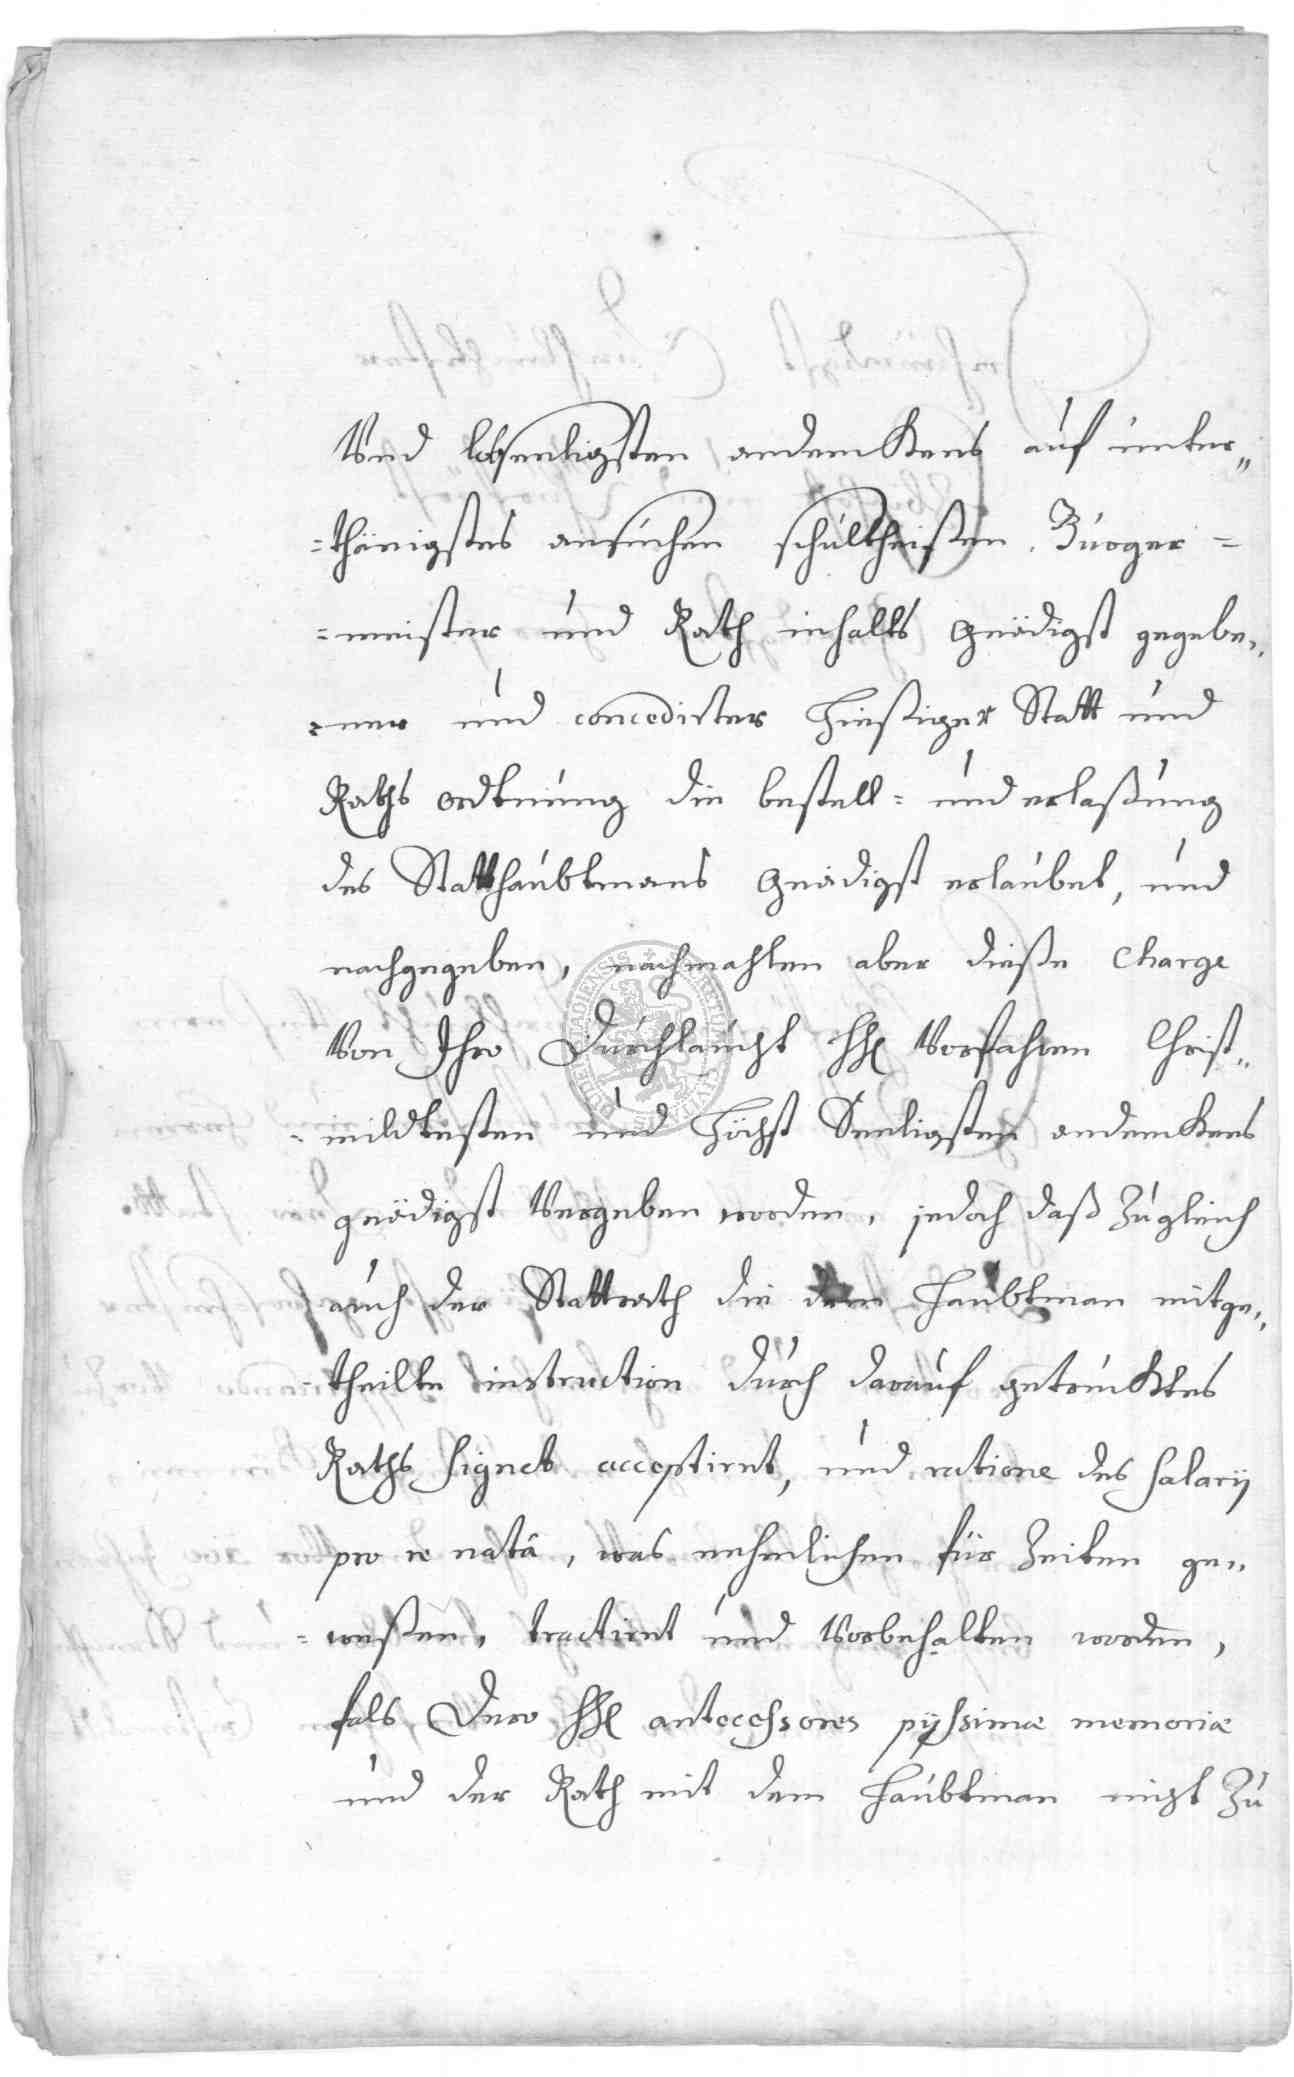 Und lobseeligsten andenckens auf unter„
=thänigstes ansuchen schultheisen. Burger=
=meister und Rath inhalts gnädigst gegebe„
=ner und concedirter hiesiger Statt und
Raths ordtnung die bestell= und erlaßung
des Statthaubtmans gnädigst erlaubet, und
nachgegeben, nachmahlen aber dieße Charge
Von Ihro Durchlaucht HH Vorfahren Christ„
=mildtesten und höchst Seeligsten andenckens
gnädigst Vergeben worden, jedoch daß zugleich
auch der Stattrath die dem haubtman mitge„
=theilte instruction durch darauf getrucktes
Raths signet acceptiret, und ratione des salarij
pro re natâ, was nehmlichen für Zeiten ge„
=weßen, tractiret und Vorbehalten worden,
fals Dero HH antecessores pijssimæ memoriæ
und der Rath mit dem haubtman nicht zu